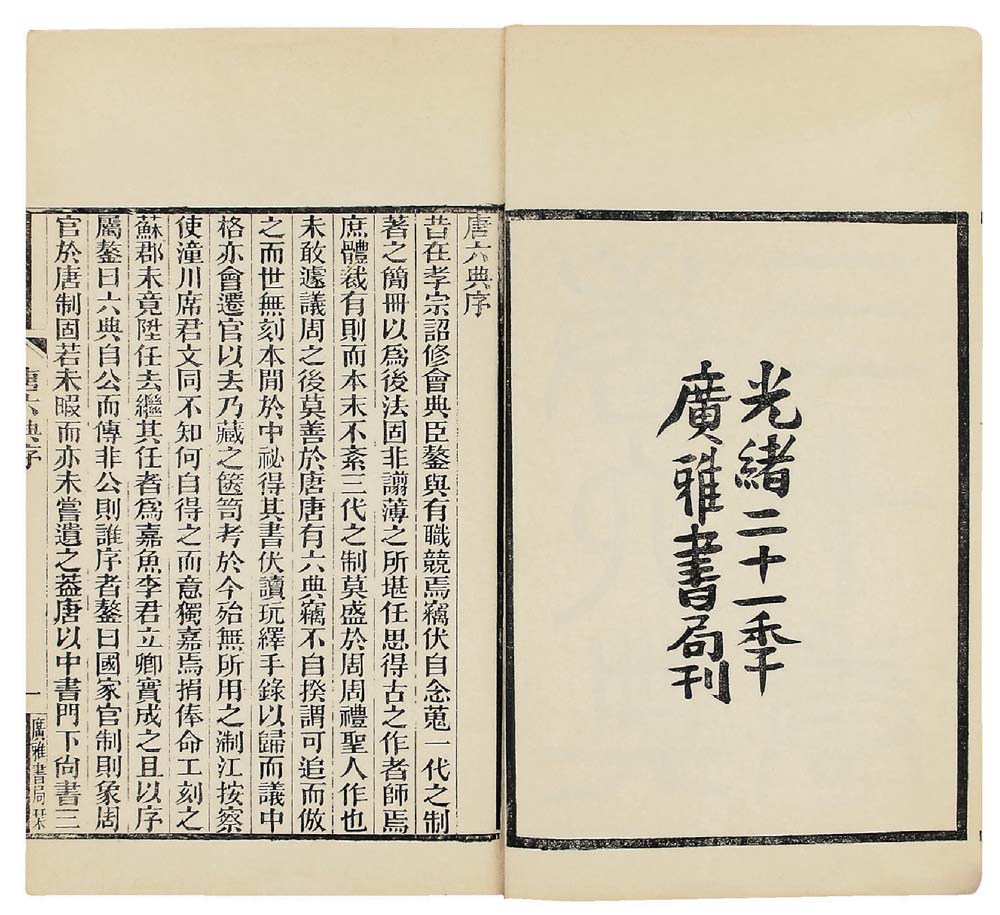 光緒二十一秊
廣雅書局刊
唐六典序
昔在孝宗詔修會典臣鏊與有職競焉竊伏自念蒐一代之制
著之簡冊以爲後法固非譾薄之所堪任思得古之作者師焉
庶體裁有則而本末不紊三代之制莫盛於周周禮聖人作也
未敢遽議周之後莫善於唐唐有六典竊不自揆謂可追而倣
之而世無刻本閒於中祕得其書伏讀玩繹手錄以歸而議中
格亦會遷官以去乃藏之篋笥考於今殆無所用之淛江按察
使潼川席君文同不知何自得之而意獨嘉焉捐俸命工刻之
蘇郡未竟陞任去繼其任者爲嘉魚李君立卿實成之且以序
屬鏊曰六典自公而傳非公則誰序者鏊曰國家官制則象周
官於唐制固若未暇而亦未嘗遺之葢唐以中書門下尙書三
唐六典序
一
廣雅書局栞